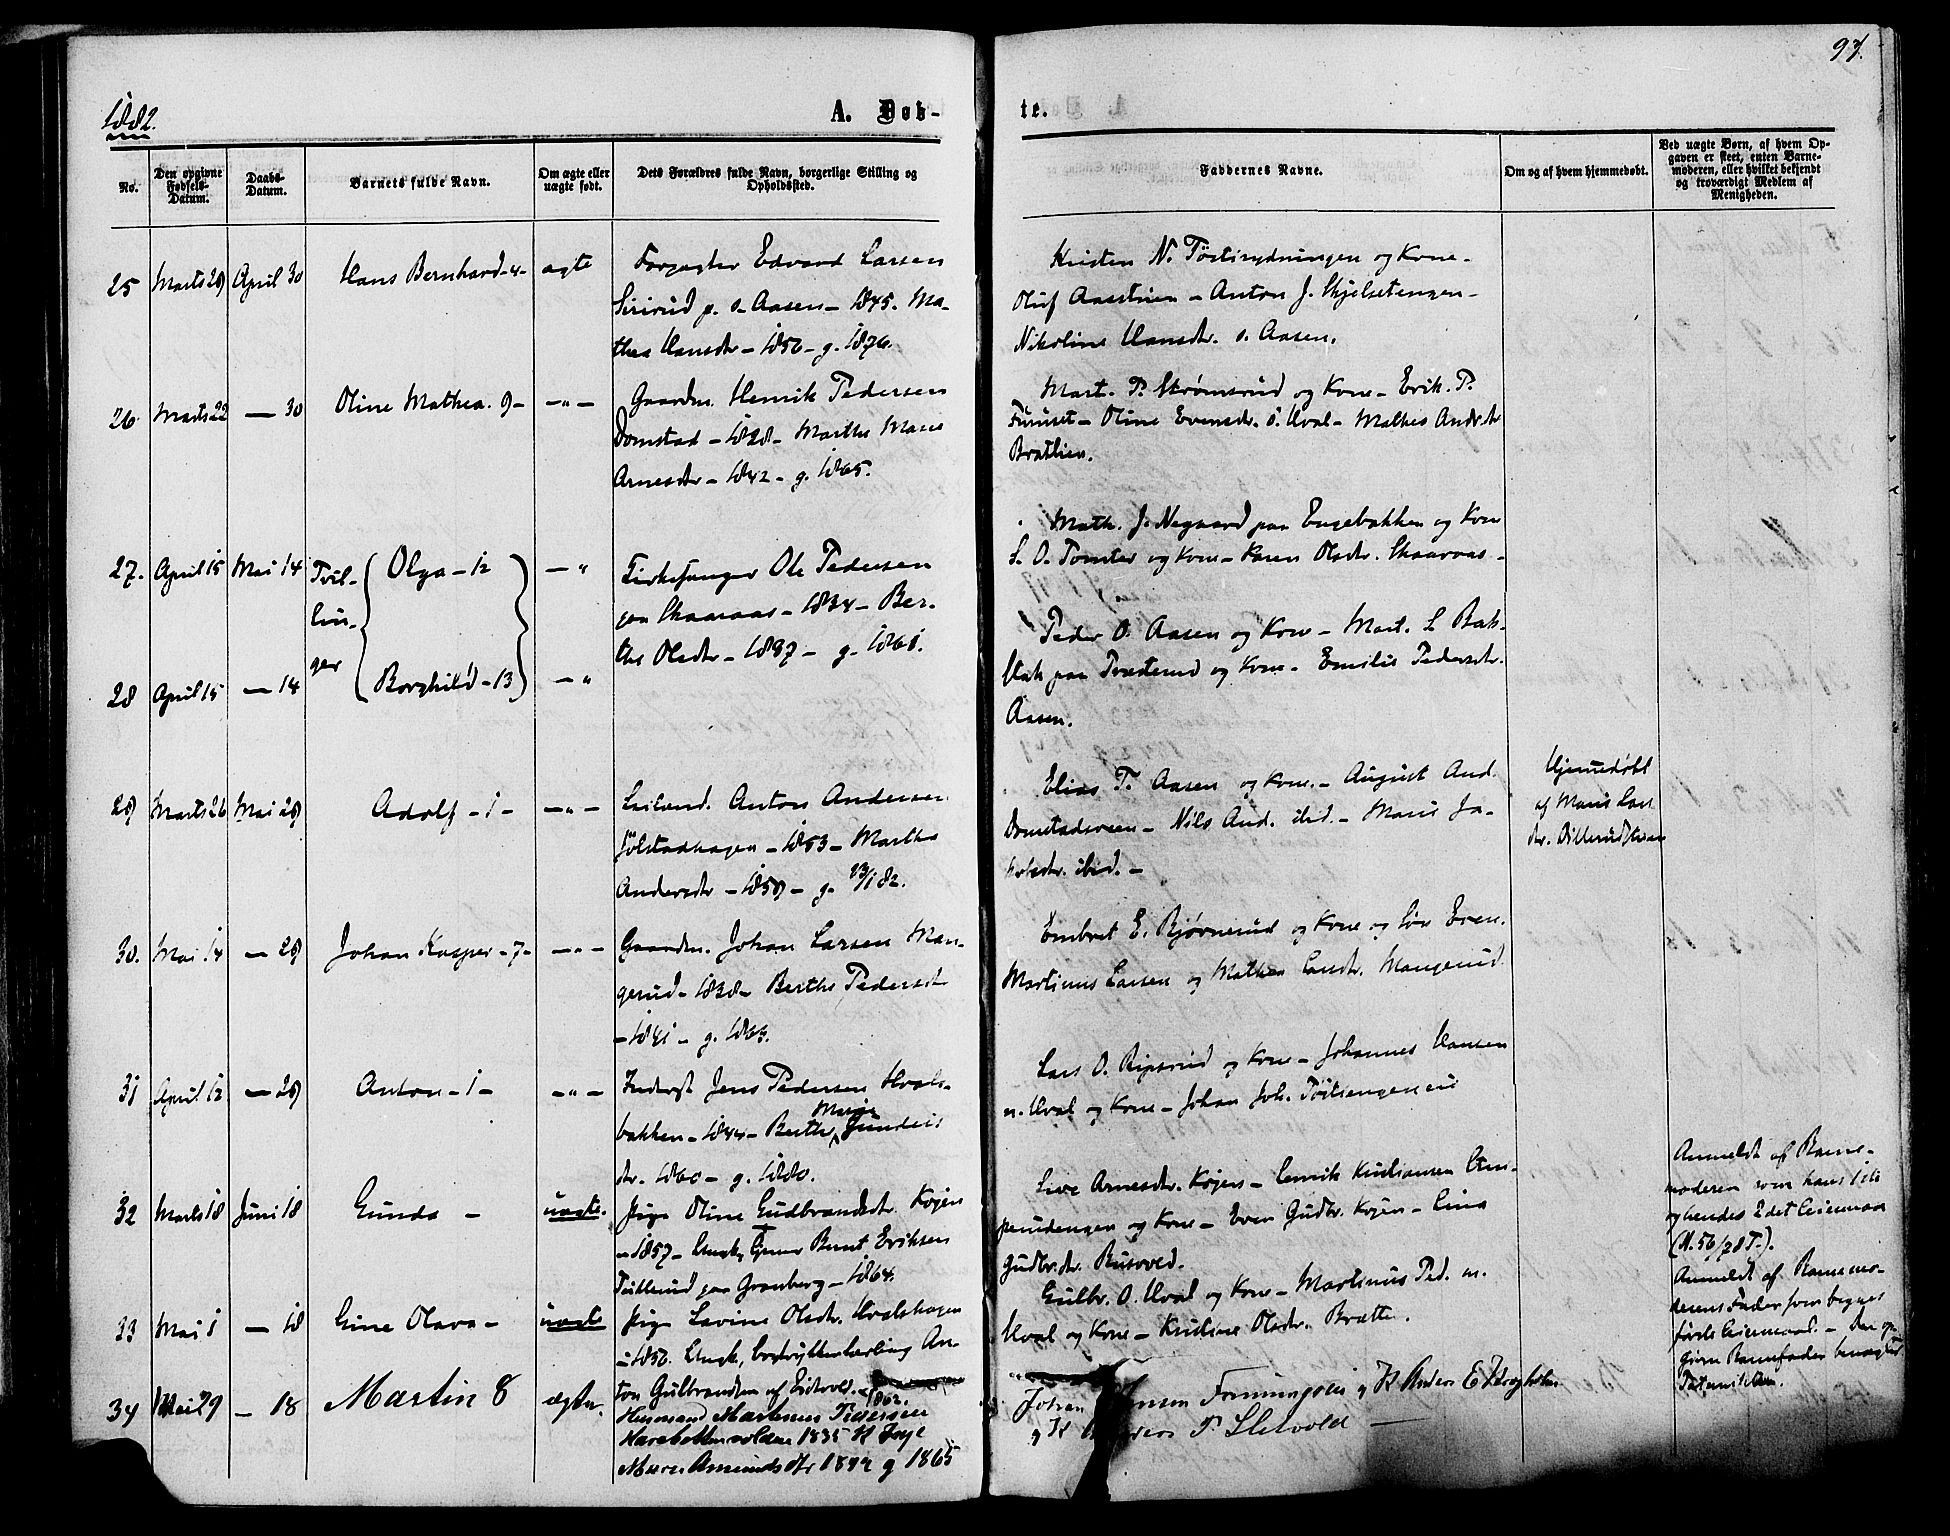 97.
1882.
A. Døb-
te.
No.
Den opgivne Fødsels-Datum.
Daabs-Datum.
Barnets fulde Navn.
Om ægte eller uægte født.
Dets Forældres fulde Navn, borgerlige Stilling og Opholdssted.
Faddernes Navne.
Om og af hvem hjemmedøbt.
Ved uægte Børn, af hvem Opgaven er skeet, enten Barnemoderen, eller hvilket bekjendt og troværdigt Medlem af Menigheden.
25 Marts 29 April 30 Hans Bernhard -4- ægte
Edvard Larsen
p. s. Aasen - 1845. Ma-
thea Hansdtr - 1850 - g. 1876.
Kristen N. og Kone -
Oluf - Anton J. Skjelsetengen -
Nikoline Hansdtr. s. Aasen.
26 Marts 22 — 30 Oline Mathea. 9 - — „ —
Gaardm. Henrik Pedersen
Domstad - 1828 - Marthe Marie
Arnesdtr - 1842 - g. 1865.
Mart. P. Strømsrud og Kone - Erik P.
Furuset - Oline Evensdr. s. Hval - Mathea Andr.dr
Bratlien.
27. April 15 Mai 14 Tvil-
lin-
ger
Olga - 12 — „
Kirkesanger Ole Pedersen
paa Skaaraas - 1834 - Ber-
the Olsdtr - 1837 - g. 1861.
Math. J. Negaard paa Engebakken og Kone
L. O. Tomter og Kone - Karen Olsdr. Skaaraas -
28 April 15 — 14 Borghild - 13 — „
Peder O. Aasen og Kone - Mart. L. Bak-
paa og Kone - Emilie Pedersdr.
Aasen.
29 Marts 26 Mai 29 Adolf - 1 - — „ —
Anton Andersen
Jølstadhagen - 1853 - Marthe
Andersdtr - 1859 - g. 23/1 82.
Elias T. Aasen og Kone. - August And.
Domstadsveen - Nils And. ibid. - Marie Ja-
kobsdr. ibid. -
Hjemmedøbt
af Marie Lars
dr.
30. Mai 14 — 29 Johan Kasper - 7 - — „ —
Gaardm. Johan Larsen Man-
gerud - 1838 - Berthe Pedersdt
- 1841 - g. 1864.
Embret E. Bjørnerud og Kone og Søn Even.
Martinus Larsen og Mathea Larsdr. Mangerud.
31 April 12 — 29 Anton - 1 - — „ —
Inderst Jens Pedersen Hvals-
bakken - 1844 - Berthe Marie
dr. 1860 - g. 1880.
Lars O. Ripsrud og Kone - Johannes Hansen
n. Hval og Kone - Johan Joh.
32 Marts 18 Juni 18 Gunda - uægte.
Pige Oline Gudbrandsdr. Kojen
- 1857 - Ungk. Bernt Eriksen
paa Granberg - 1864.
Live Arnesdtr. Kojen - Henrik Kristiansen
og Kone - Even Gudbr. Kojen - Lina
Gudbr.dr. Busoved.
Anmeldt af Barne-
moderen som hans 1ste
og hendes 2det Leiermaal
(N. 56/78 T.).
33 Mai 1 — 18 Gine Olava - uægte
Pige Lovine Olsdr. Hvalshagen
- 1856. Ungk. bogtrykkerlærling An-
ton Gulbrandsen af Eidsvold. - 1862.
Gulbr. O. Hval og Kone - Martinus Ped. n.
Hval og Kone - Kristine Olsdr. Bratte.
Anmeldt af Barnemo-
derens Fader som begges
første Leiermaal. - Den op-
givne Barnefader benægter
34 Mai 29 — 18 Martin 8 ægte.
Husmand Martinus Pedersen
1835 H Inge
Marie Amundsdtr 1844 g 1865
Johan og K Anders E
og K P. Sletvold —